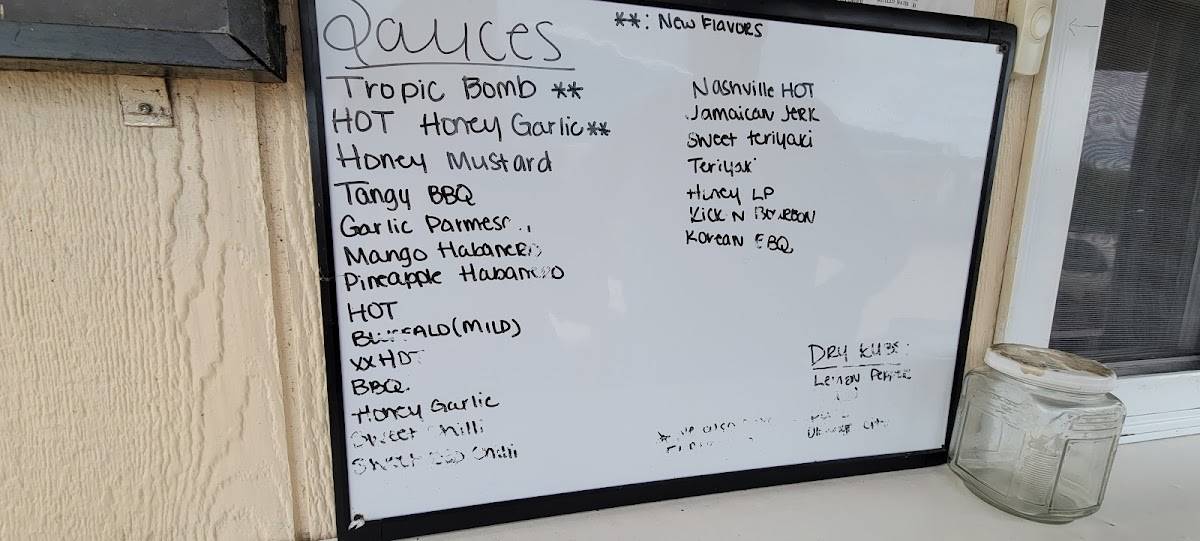 Sauces
**: New Flavors
Tropic Bomb **
HOT Honey Garlic **
Honey Mustard
Tangy BBQ
Garlic Parmesan
Mango Habanero
Pineapple Habanero
HOT
BUFFALO (MILD)
XX HOT
BBQ
Honey Garlic
Sweet Chilli
Sweet BBQ Chilli
Nashville HOT
Jamaican Jerk
Sweet teriyaki
Teriyaki
Honey LP
Kick N Bourbon
Korean BBQ
DRY RUBS:
Lemon Pepper